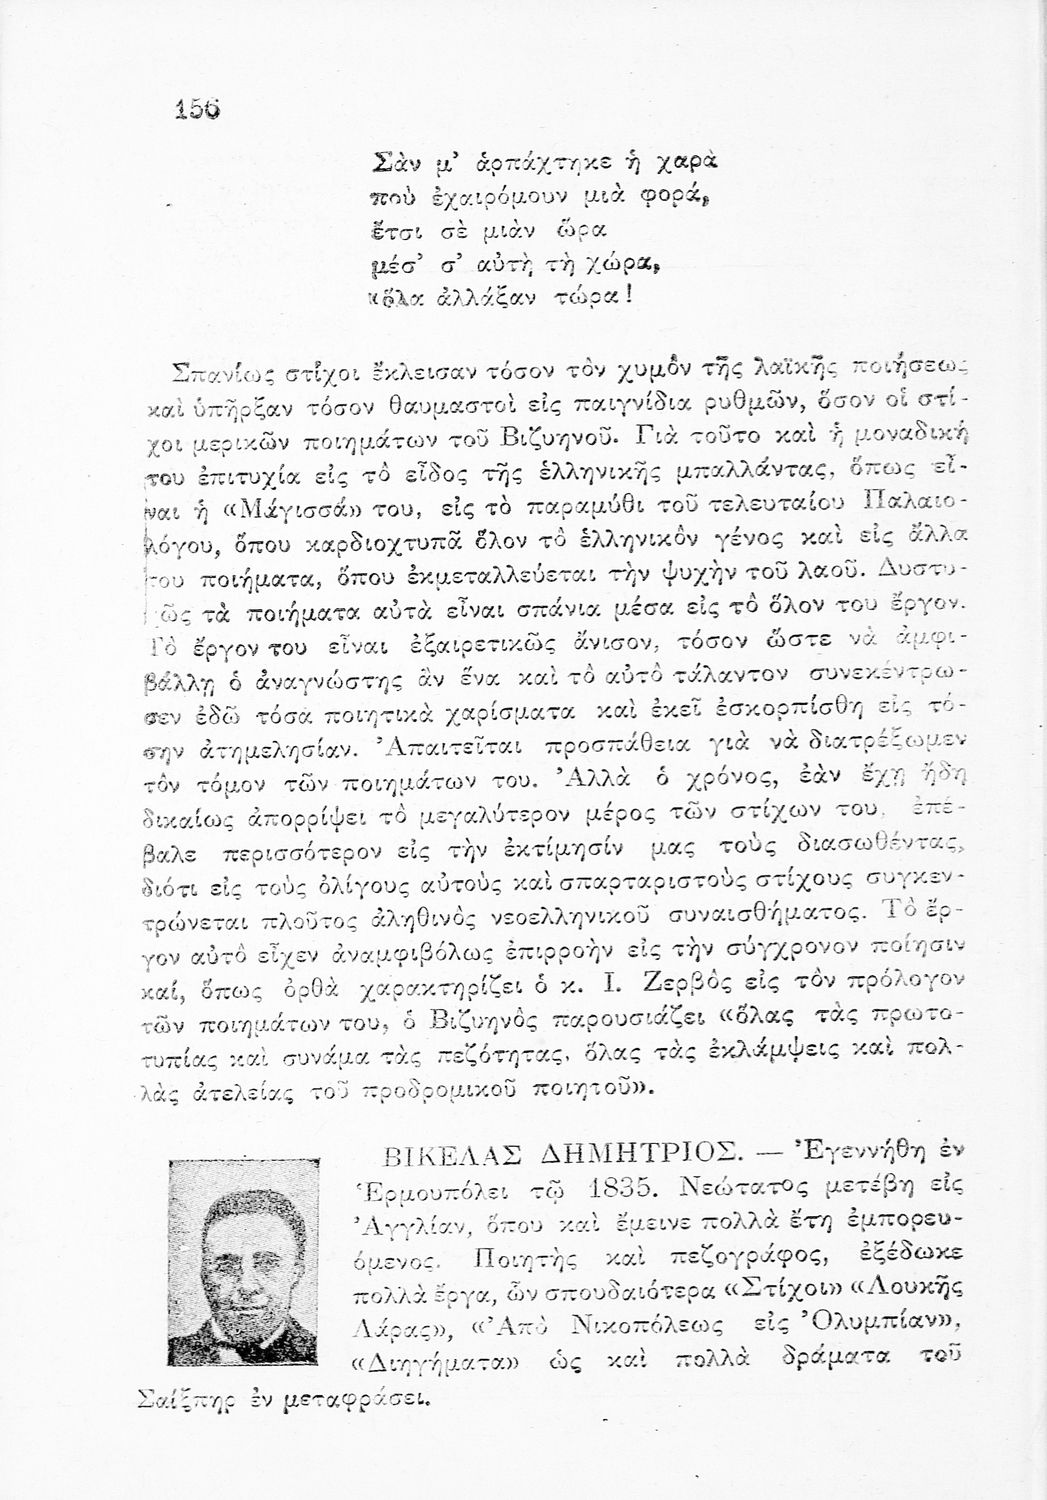 156
Σὰν μ' ἁρπάχτηκε ἡ χαρὰ
ποὺ ἐχαιρόμουν μιὰ φορά,
ἔτσι σὲ μιὰν ὥρα
μέσ' σ' αὐτὴ τὴ χώρα,
κὅλα ἀλλάξαν τώρα!
Σπανίως στίχοι ἔκλεισαν τόσον τὸν χυμὸν τῆς λαϊκῆς ποιήσεως
καὶ ὑπῆρξαν τόσον θαυμαστοὶ εἰς παιγνίδια ρυθμῶν, ὅσον οἱ στί-
χοι μερικῶν ποιημάτων τοῦ Βιζυηνοῦ. Γιὰ τοῦτο καὶ ἡ μοναδική
του ἐπιτυχία εἰς τὸ εἶδος τῆς ἑλληνικῆς μπαλλάντας, ὅπως εἶ-
ναι ἡ «Μάγισσά» του, εἰς τὸ παραμύθι τοῦ τελευταίου Παλαιο-
λόγου, ὅπου καρδιοχτυπᾶ ὅλον τὸ ἑλληνικὸν γένος καὶ εἰς ἄλλα
του ποιήματα, ὅπου ἐκμεταλλεύεται τὴν ψυχὴν τοῦ λαοῦ. Δυστυ-
ῶς τὰ ποιήματα αὐτὰ εἶναι σπάνια μέσα εἰς τὸ ὅλον του ἔργον.
Τὸ ἔργον του εἶναι ἐξαιρετικῶς ἄνισον, τόσον ὥστε νὰ ἀμφι-
βάλλῃ ὁ ἀναγνώστης ἂν ἕνα καὶ τὸ αὐτὸ τάλαντον συνεκέντρω-
σεν ἐδῶ τόσα ποιητικὰ χαρίσματα καὶ ἐκεῖ ἐσκορπίσθη εἰς τό-
σην ἀτημελησίαν. Ἀπαιτεῖται προσπάθεια γιὰ νὰ διατρέξωμεν
τὸν τόμον τῶν ποιημάτων του. Ἀλλὰ ὁ χρόνος, ἐὰν ἔχῃ ἤδη
δικαίως ἀπορρίψει τὸ μεγαλύτερον μέρος τῶν στίχων του, ἐπέ-
βαλε περισσότερον εἰς τὴν ἐκτίμησίν μας τοὺς διασωθέντας,
διότι εἰς τοὺς ὀλίγους αὐτοὺς καὶ σπαρταριστοὺς στίχους συγκεν-
τρώνεται πλοῦτος ἀληθινὸς νεοελληνικοῦ συναισθήματος. Τὸ ἔρ-
γον αὐτὸ εἶχεν ἀναμφιβόλως ἐπιρροὴν εἰς τὴν σύγχρονον ποίησιν
καί, ὅπως ὀρθὰ χαρακτηρίζει ὁ κ. Ι. Ζερβὸς εἰς τὸν πρόλογον
τῶν ποιημάτων του, ὁ Βιζυηνὸς παρουσιάζει «ὅλας τὰς πρωτο-
τυπίας καὶ συνάμα τὰς πεζότητας, ὅλας τὰς ἐκλάμψεις καὶ πολ-
λὰς ἀτελείας τοῦ προδρομικοῦ ποιητοῦ».
ΒΙΚΕΛΑΣ ΔΗΜΗΤΡΙΟΣ. — Ἐγεννήθη ἐν
Ἑρμουπόλει τῷ 1835. Νεώτατος μετέβη εἰς
Ἀγγλίαν, ὅπου καὶ ἔμεινε πολλὰ ἔτη ἐμπορευ-
όμενος. Ποιητὴς καὶ πεζογράφος, ἐξέδωκε
πολλὰ ἔργα, ὧν σπουδαιότερα «Στίχοι» «Λουκῆς
Λάρας», «Ἀπὸ Νικοπόλεως εἰς Ὀλυμπίαν»,
«Διηγήματα» ὡς καὶ πολλὰ δράματα τοῦ
Σαίξπηρ ἐν μεταφράσει.